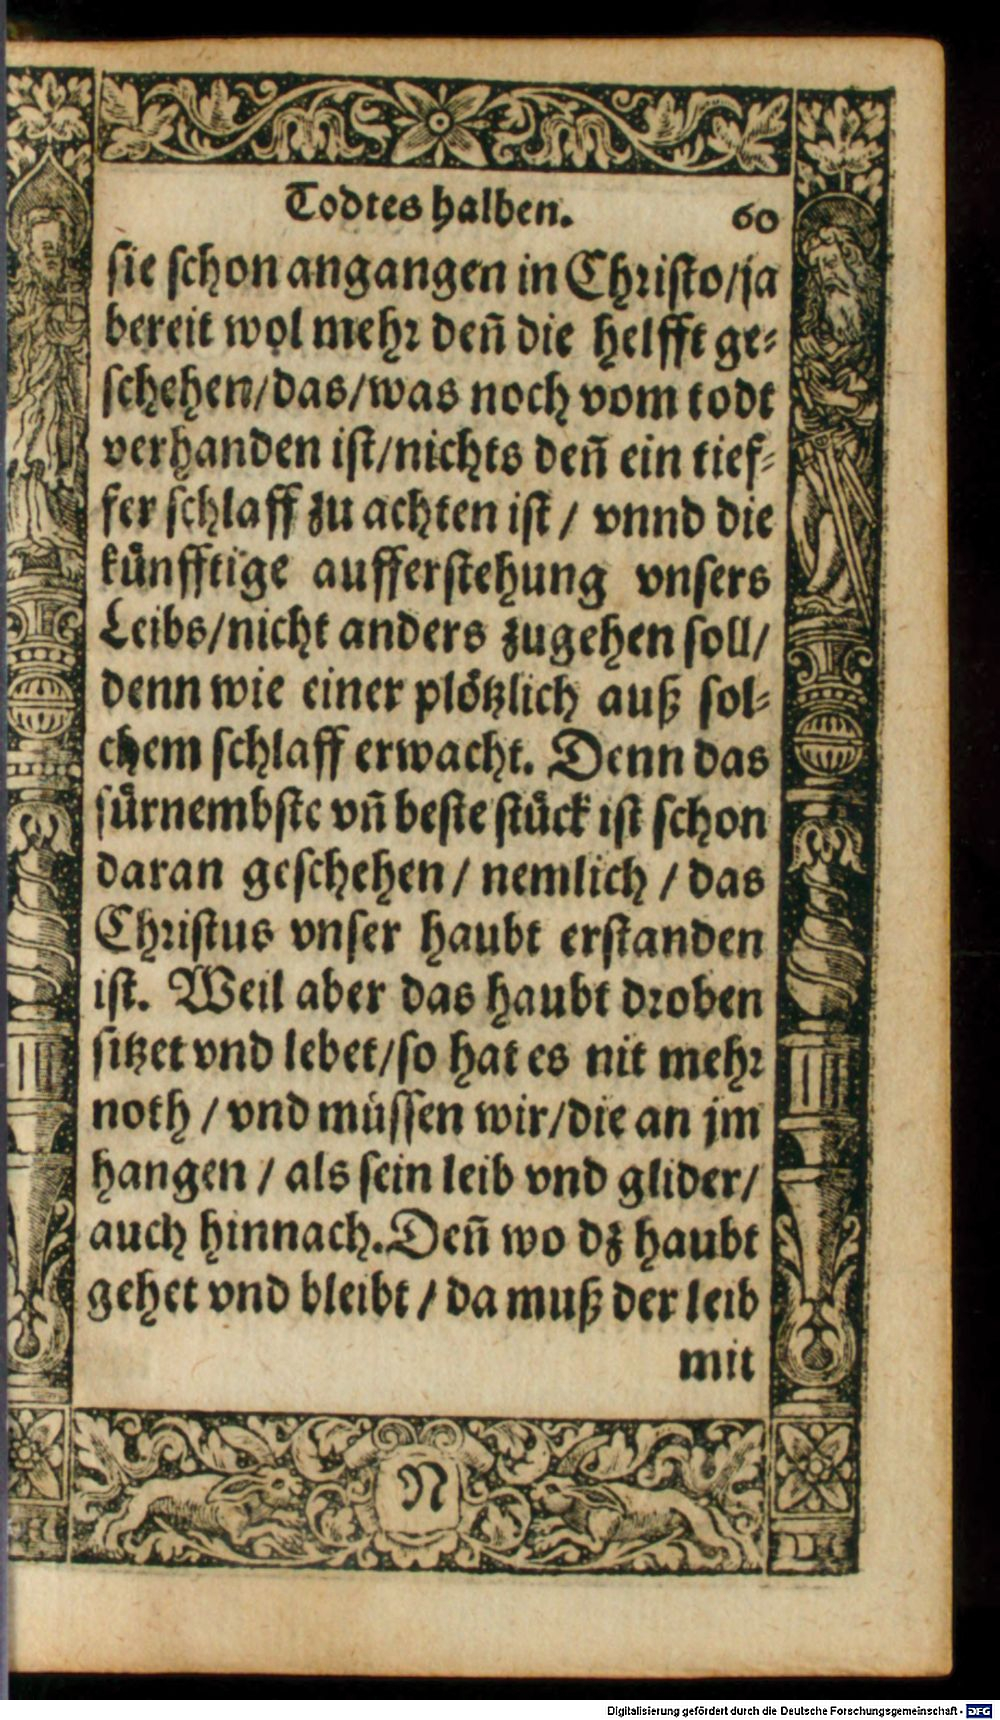 Todtes halben. 60
sie schon angangen in Christo/ja
bereit wol mehr deñ die helfft ge⸗
schehen/das/was noch vom todt
verhanden ist/nichts deñ ein tief⸗
fer schlaff zu achten ist / vnnd die
kuͤnfftige aufferstehung vnsers
Leibs/nicht anders zugehen soll/
denn wie einer ploͤtzlich auß sol⸗
chem schlaff erwacht. Denn das
fuͤrnembste vñ beste stuͤck ist schon
daran geschehen / nemlich / das
Christus vnser haubt erstanden
ist. Weil aber das haubt droben
sitzet vnd lebet/so hat es nit mehr
noth / vnd muͤssen wir/die an jm
hangen / als sein leib vnd glider/
auch hinnach. Deñ wo dz haubt
gehet vnd bleibt / da muß der leib
mit
N
Digitalisierung gefördert durch die Deutsche Forschungsgemeinschaft - DFG